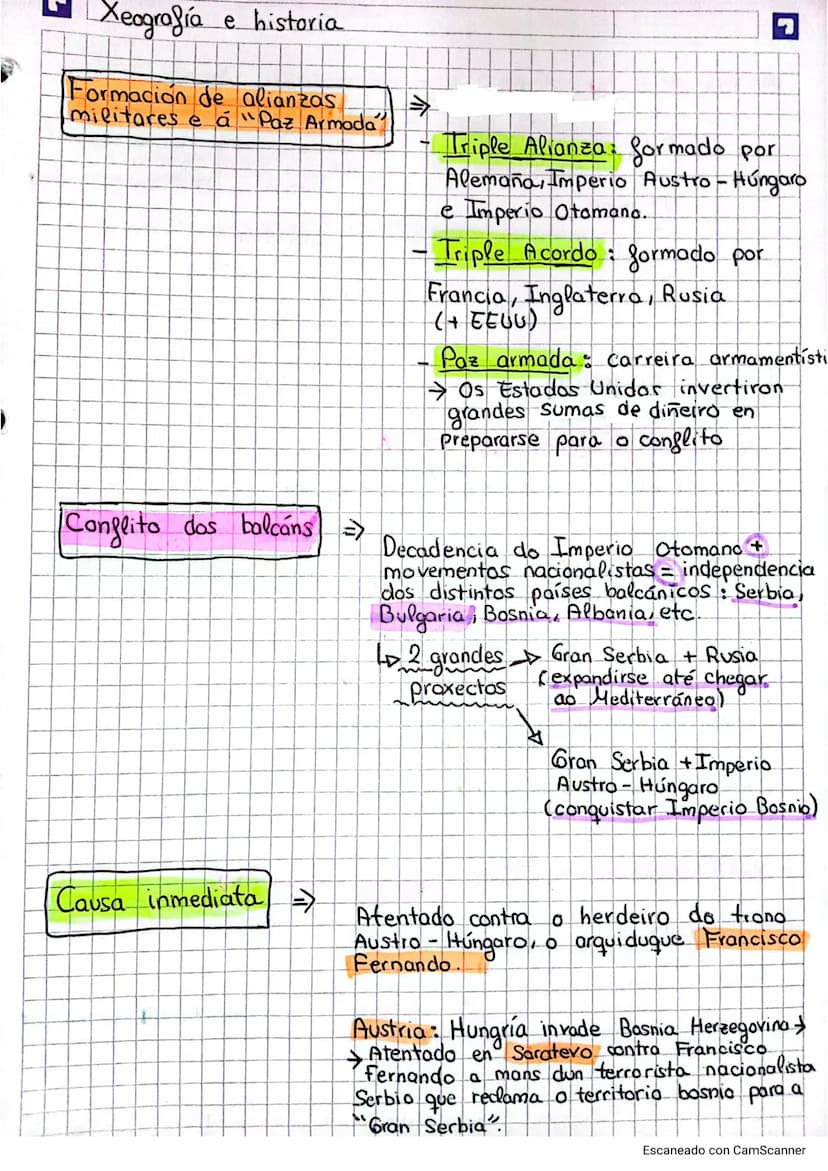 Xeografía e historia
Formación de alianzas
militares e á "Paz Armada"
⇒
- Triple Alianza: formado por
Alemaña, Imperio Austro-Húngaro
e Imperio Otomano.
- Triple Acordo: formado por
Francia, Inglaterra, Rusia
(+ EEUU)
- Paz armada: carreira armamentísti
→ Os Estados Unidos invertiron
grandes sumas de diñeiro en
prepararse para o conflito
Conflito dos balcáns ⇒
Decadencia do Imperio Otomano +
movementos nacionalistas = independencia
dos distintos países balcánicos: Serbia,
Bulgaria, Bosnia, Albania, etc.
↳ 2 grandes → Gran Serbia + Rusia
proxectos (expandirse até chegar
ao Mediterráneo)
Gran Serbia + Imperio
Austro-Húngaro
(conquistar Imperio Bosnio)
Causa inmediata ⇒
Atentado contra o herdeiro do trono
Austro-Húngaro, o arquiduque Francisco
Fernando.
Austria: Hungría invade Bosnia Herzegovina →
→ Atentado en Saratevo contra Francisco
Fernando a mans dun terrorista nacionalista
Serbio que reclama o territorio bosnio para a
"Gran Serbia".
Escaneado con CamScanner